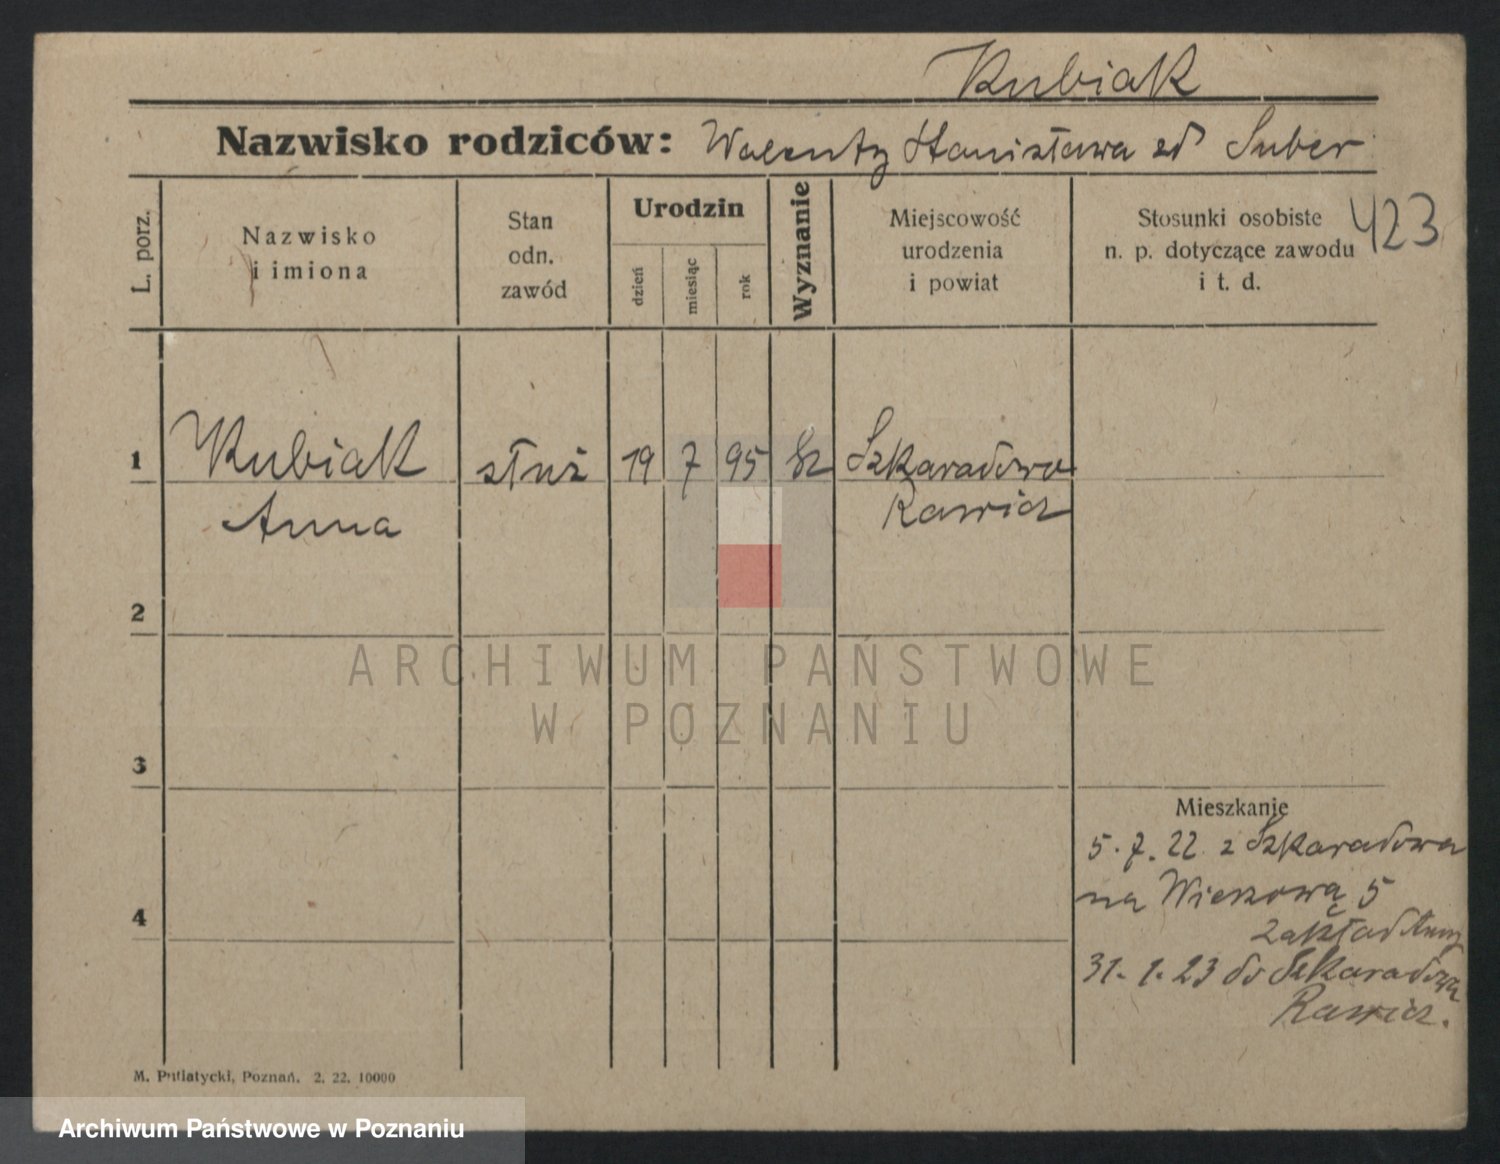 Kubiak
Nazwisko rodziców: Walenty Stanisława zd Suber
423
L. porz.
Nazwisko
i imiona
Stan
odn.
zawód
Urodzin
dzień
miesiąc
rok
Wyznanie
Miejscowość
urodzenia
i powiat
Stosunki osobiste
n. p. dotyczące zawodu
i t. d.
1
Kubiak służ 19 7 95 Szkaradowo
Anna Rawicz
2
3
4
Mieszkanie
5. 7. 22 z Szkaradowa
na 5
Zakład Anny
31. 1. 23 do Szkaradowa
Rawicz.
M. Putiatycki, Poznań. 2. 22. 10000
ARCHIWUM PAŃSTWOWE
W POZNANIU
Archiwum Państwowe w Poznaniu